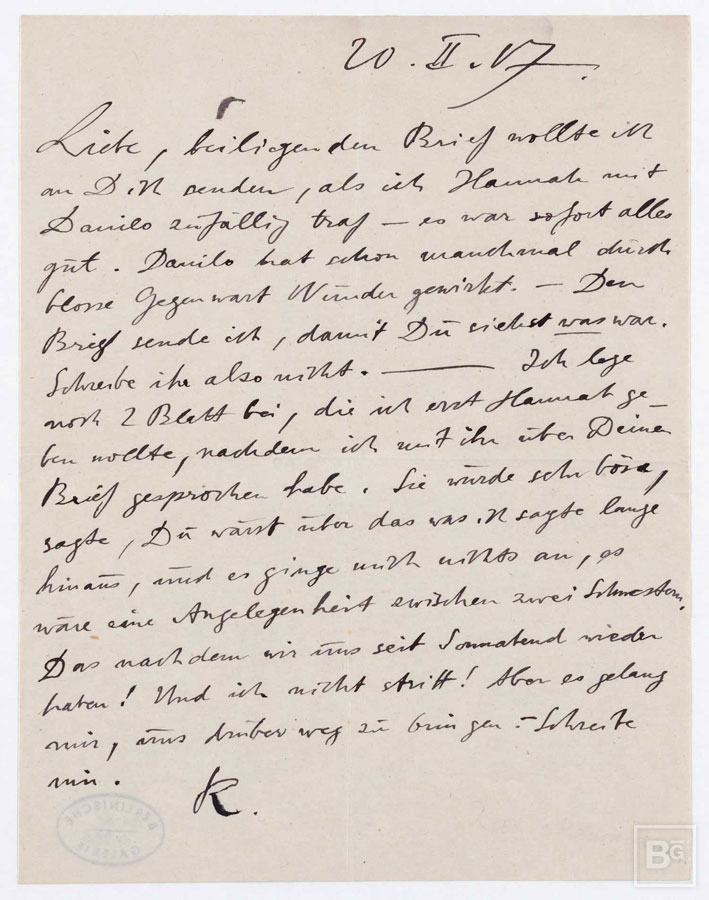 20. II. 17.
Liebe, beiliegenden Brief wollte ich
an Dich senden, als ich Hannah mit
Danilo zufällig traf – es war sofort alles
gut. Danilo hat schon manchmal durch
blosse Gegenwart Wunder gewirkt. – Den
Brief sende ich, damit Du siehst was war.
Schreibe ihr also nicht. — Ich lege
noch 2 Blatt bei, die ich erst Hannah ge-
ben wollte, nachdem ich mit ihr über Deinen
Brief gesprochen habe. Sie wurde sehr böse,
sagte, Du wärst über das was ich sagte lange
hinaus, und es ginge mich nichts an, es
wäre eine Angelegenheit zwischen zwei Schwestern.
Das nachdem wir uns seit Sonnabend wieder
haben! Und ich nicht stritt! Aber es gelang
mir, uns drüber weg zu bringen. – Schreibe
mir. R.
BERLINISCHE
GALERIE
BG